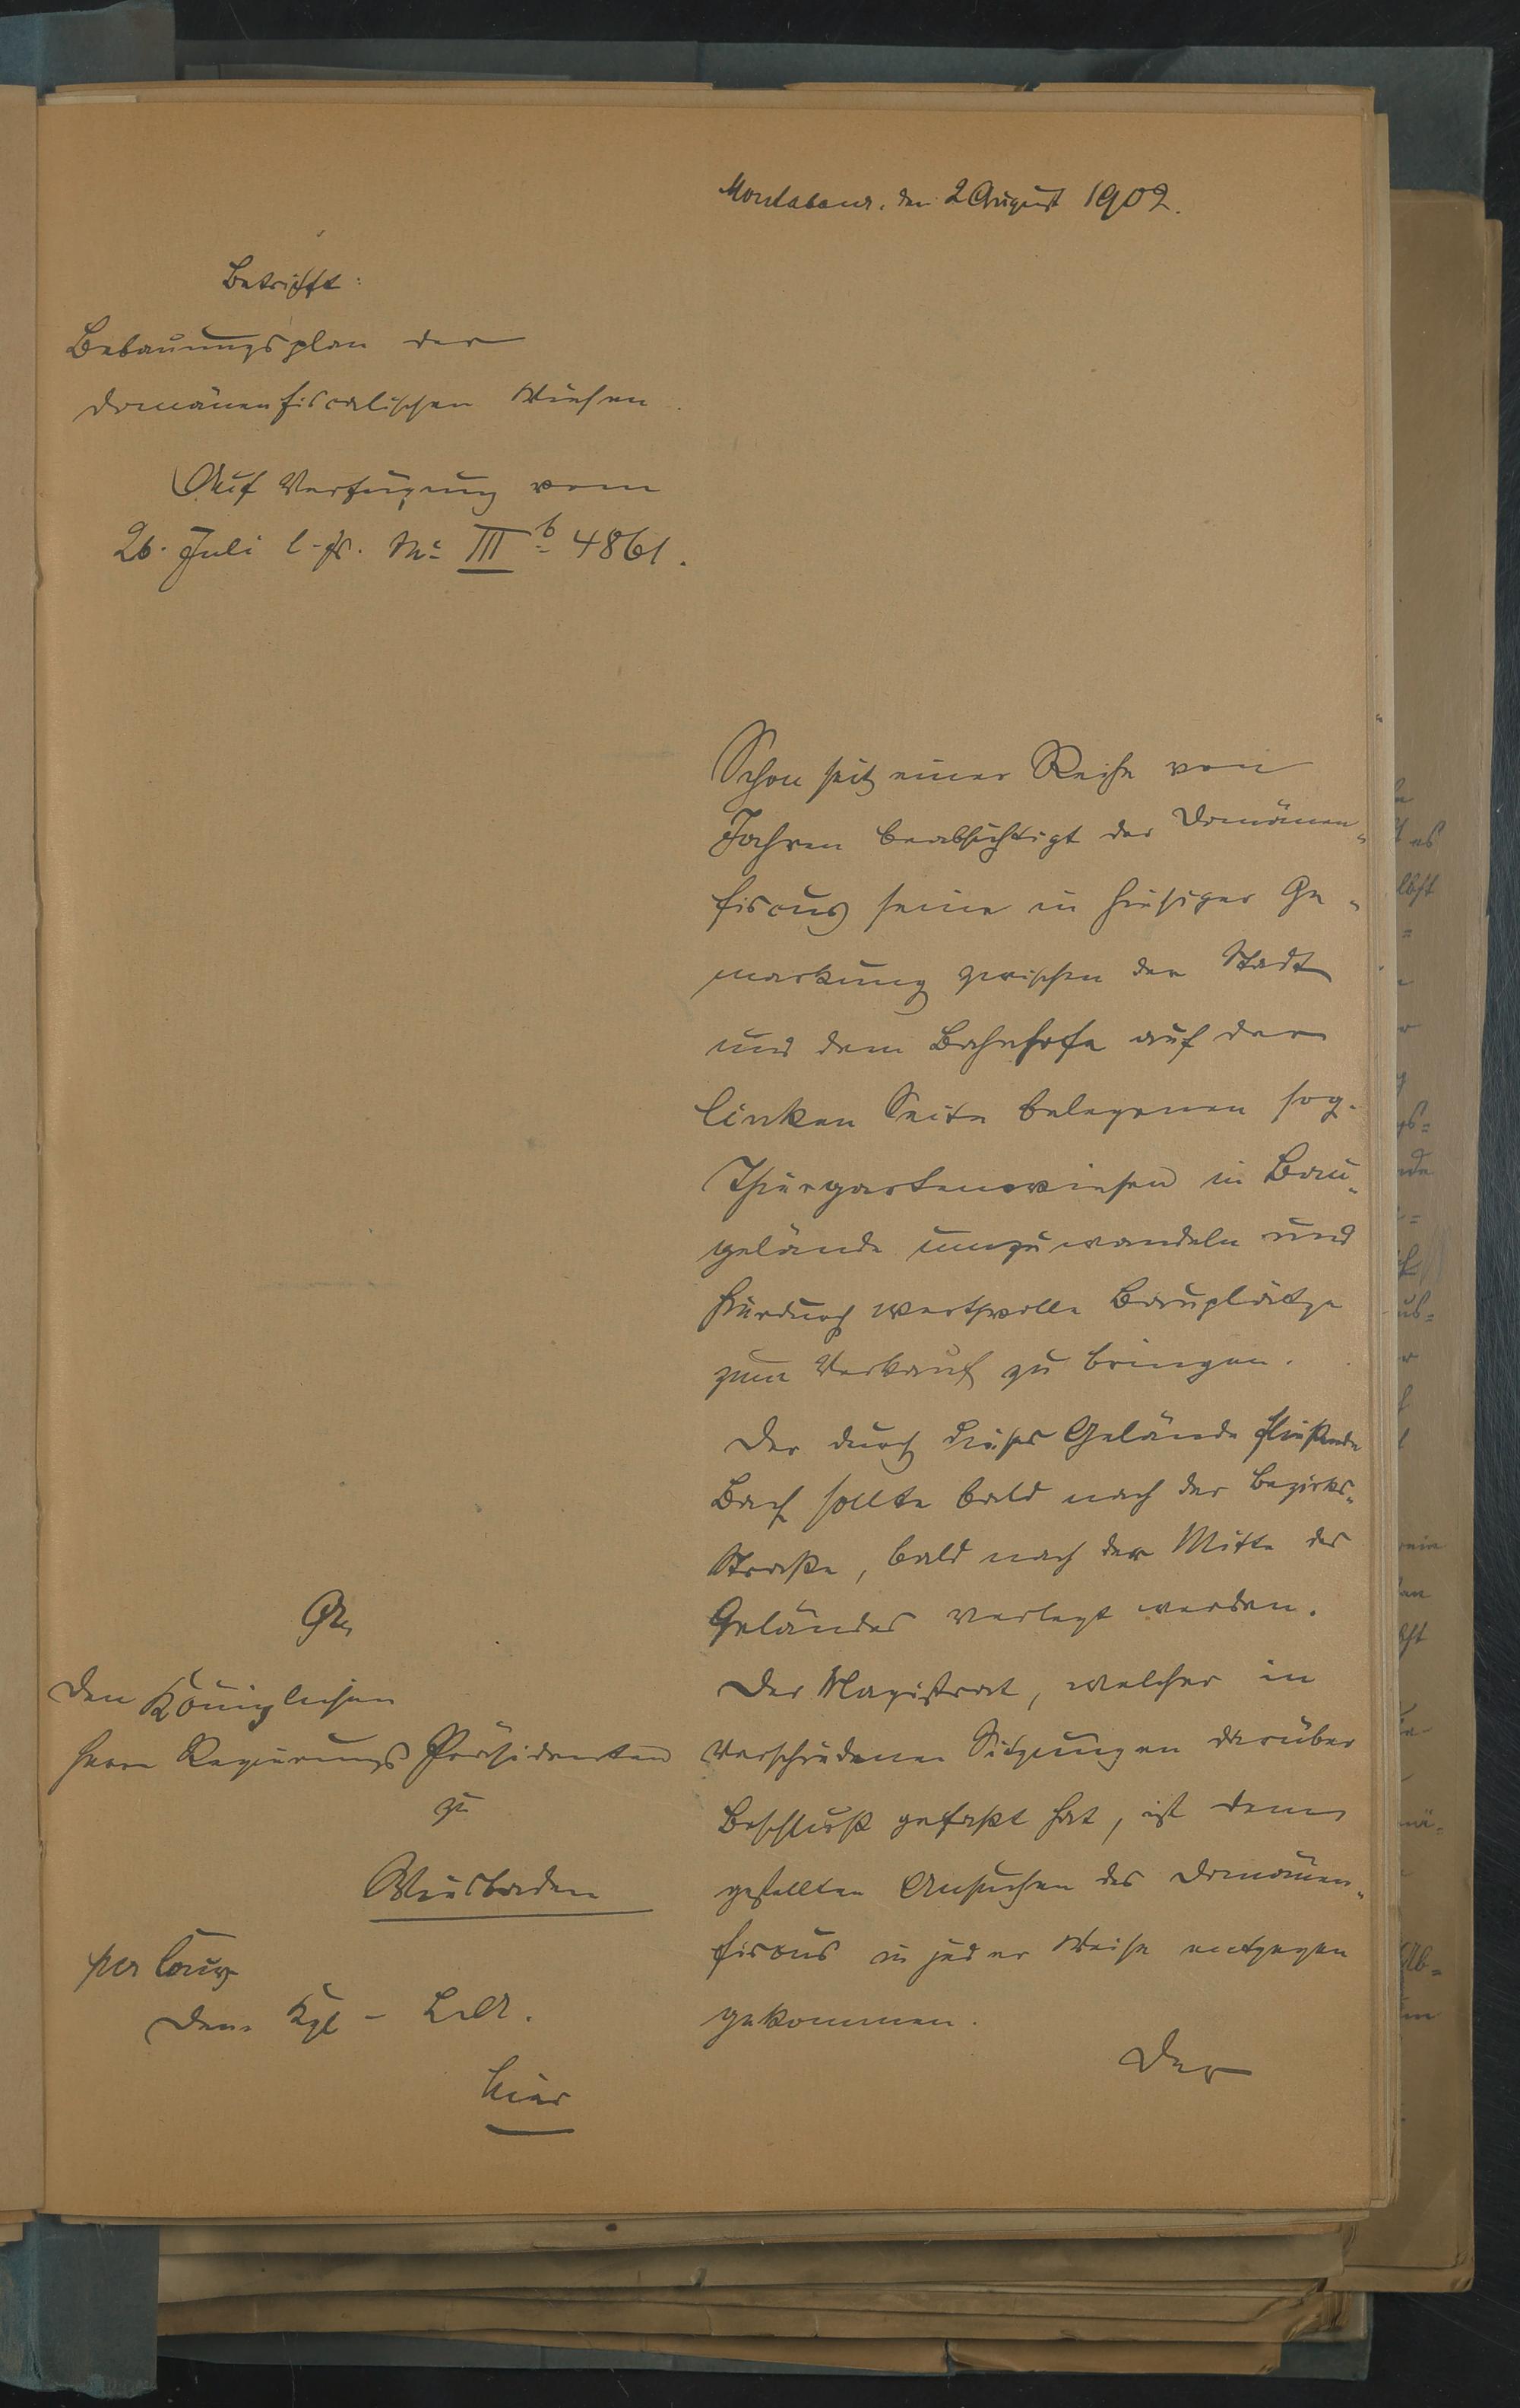 Montabaur, den 2 August 1902.
Betrifft:
Bebauungsplan der
domänenfiscalischen Wiesen.
Auf Verfügung vom
26. Juli l. Js. No III b 4861.
Schon seit einer Reihe von
Jahren beabsichtigt der Domänen-
fiscus seine in hiesiger Ge-
markung zwischen der Stadt
und dem Bahnhofe auf der
linken Seite belegenen sog.
Thiergartenwiesen in Bau-
gelände umzuwandeln und
hierdurch werthvolle Bauplätze
zum Verkauf zu bringen.
Der durch dieses Gelände fließende
Bach sollte bald nach der Bezirks-
straße, bald nach der Mitte des
Geländes verlegt werden.
Der Magistrat, welcher in
verschiedenen Sitzungen darüber
Beschluß gefaßt hat, ist dem
gestellten Ansuchen des Domänen-
fiscus in jeder Weise entgegen
gekommen.
Der
An
den Königlichen
Herrn Regierungs Präsidenten
zu
Wiesbaden
per Couv
dem Kgl - L.R.
hier